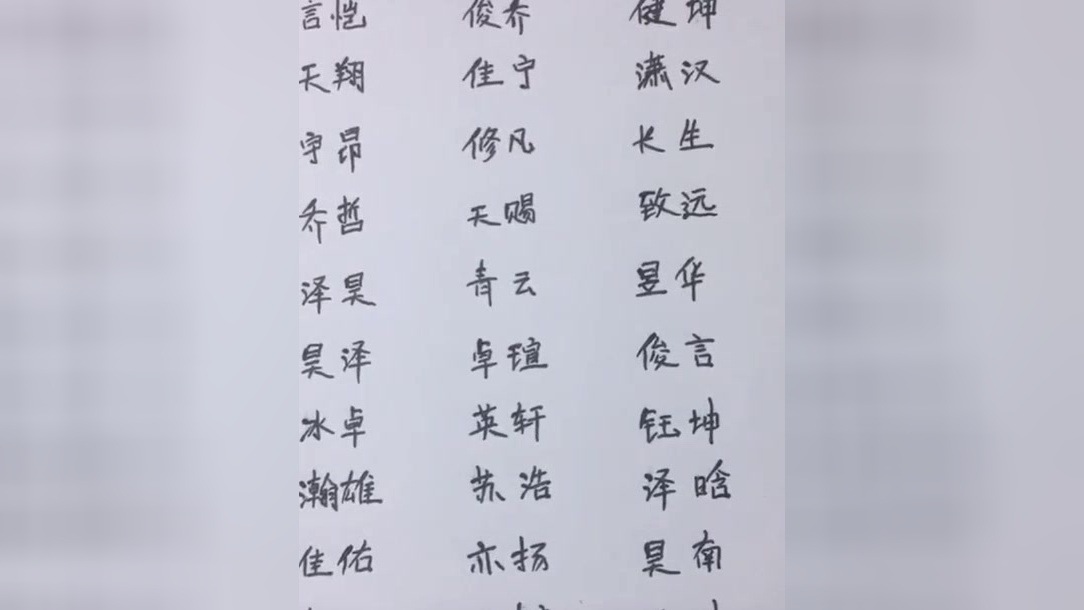 言恺 俊乔 健坤
天翔 佳宁 潇汉
宇昂 修凡 长生
乔哲 天赐 致远
泽昊 青云 昱华
昊泽 卓瑄 俊言
冰卓 英轩 钰坤
瀚雄 苏浩 泽晗
佳佑 亦扬 昊南